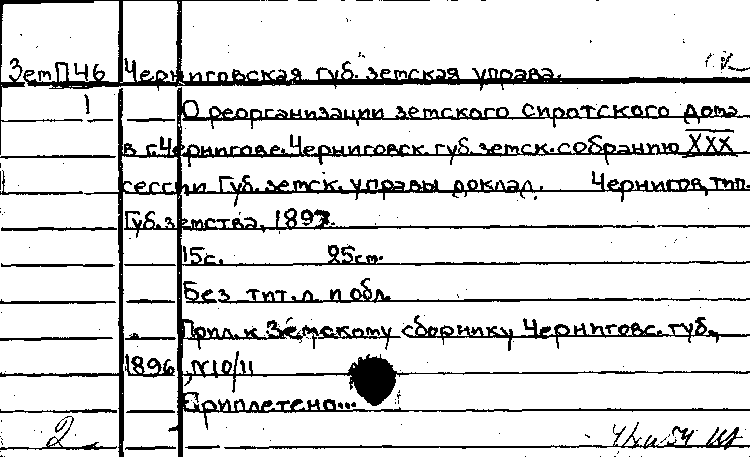 ЗемП46 Черниговская губ. земская управа.
1 О реорганизации земского сиротского дома
в г.Чернигове.Черниговск.губ.земск.собранию XXX
сессии Губ.земск.управы доклад. Чернигов,тип.
Губ.земства, 1897.
15с. 25см.
Без тит.л. и обл.
Прил.к Земскому сборнику Черниговс.губ.,
1896, №10/11
Приплетено...
2